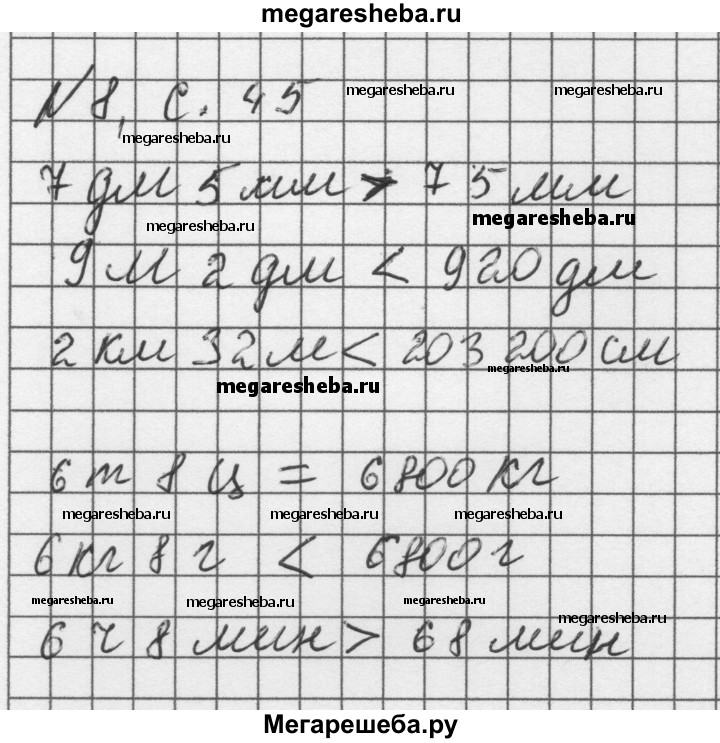 megaresheba.ru
№ 8, с. 45
megaresheba.ru megaresheba.ru
megaresheba.ru
7 дм 5 мм > 75 мм
megaresheba.ru megaresheba.ru
9 м 2 дм < 920 дм
2 км 32 м < 203 200 см
megaresheba.ru megaresheba.ru
6 т 8 ц = 6800 кг
megaresheba.ru megaresheba.ru megaresheba.ru
6 кг 8 г < 6800 г
megaresheba.ru megaresheba.ru megaresheba.ru megaresheba.ru
6 ч 8 мин > 68 мин
Мегарешеба.ру